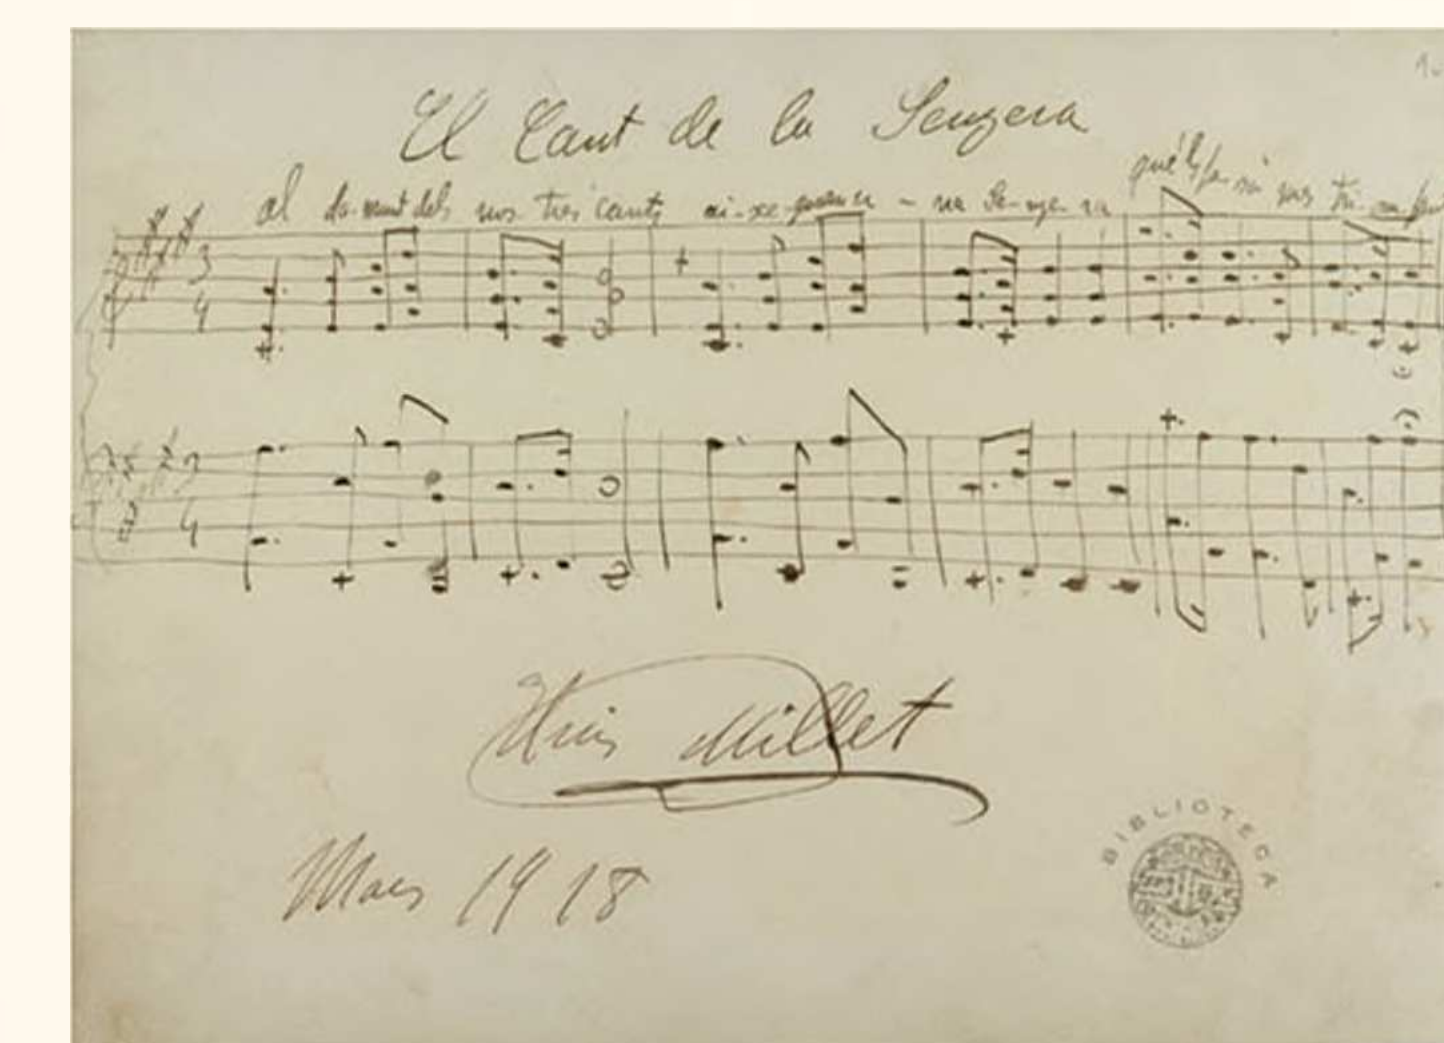 El Cant de la Senyera
al da-munt dels nos-tres cants ai-xe-quem u-na Se-nye-ra
que'ls fa-rà mes tri-om-fants
3
4
3
4
Lluis Millet
Mars 1918
BIBLIOTECA